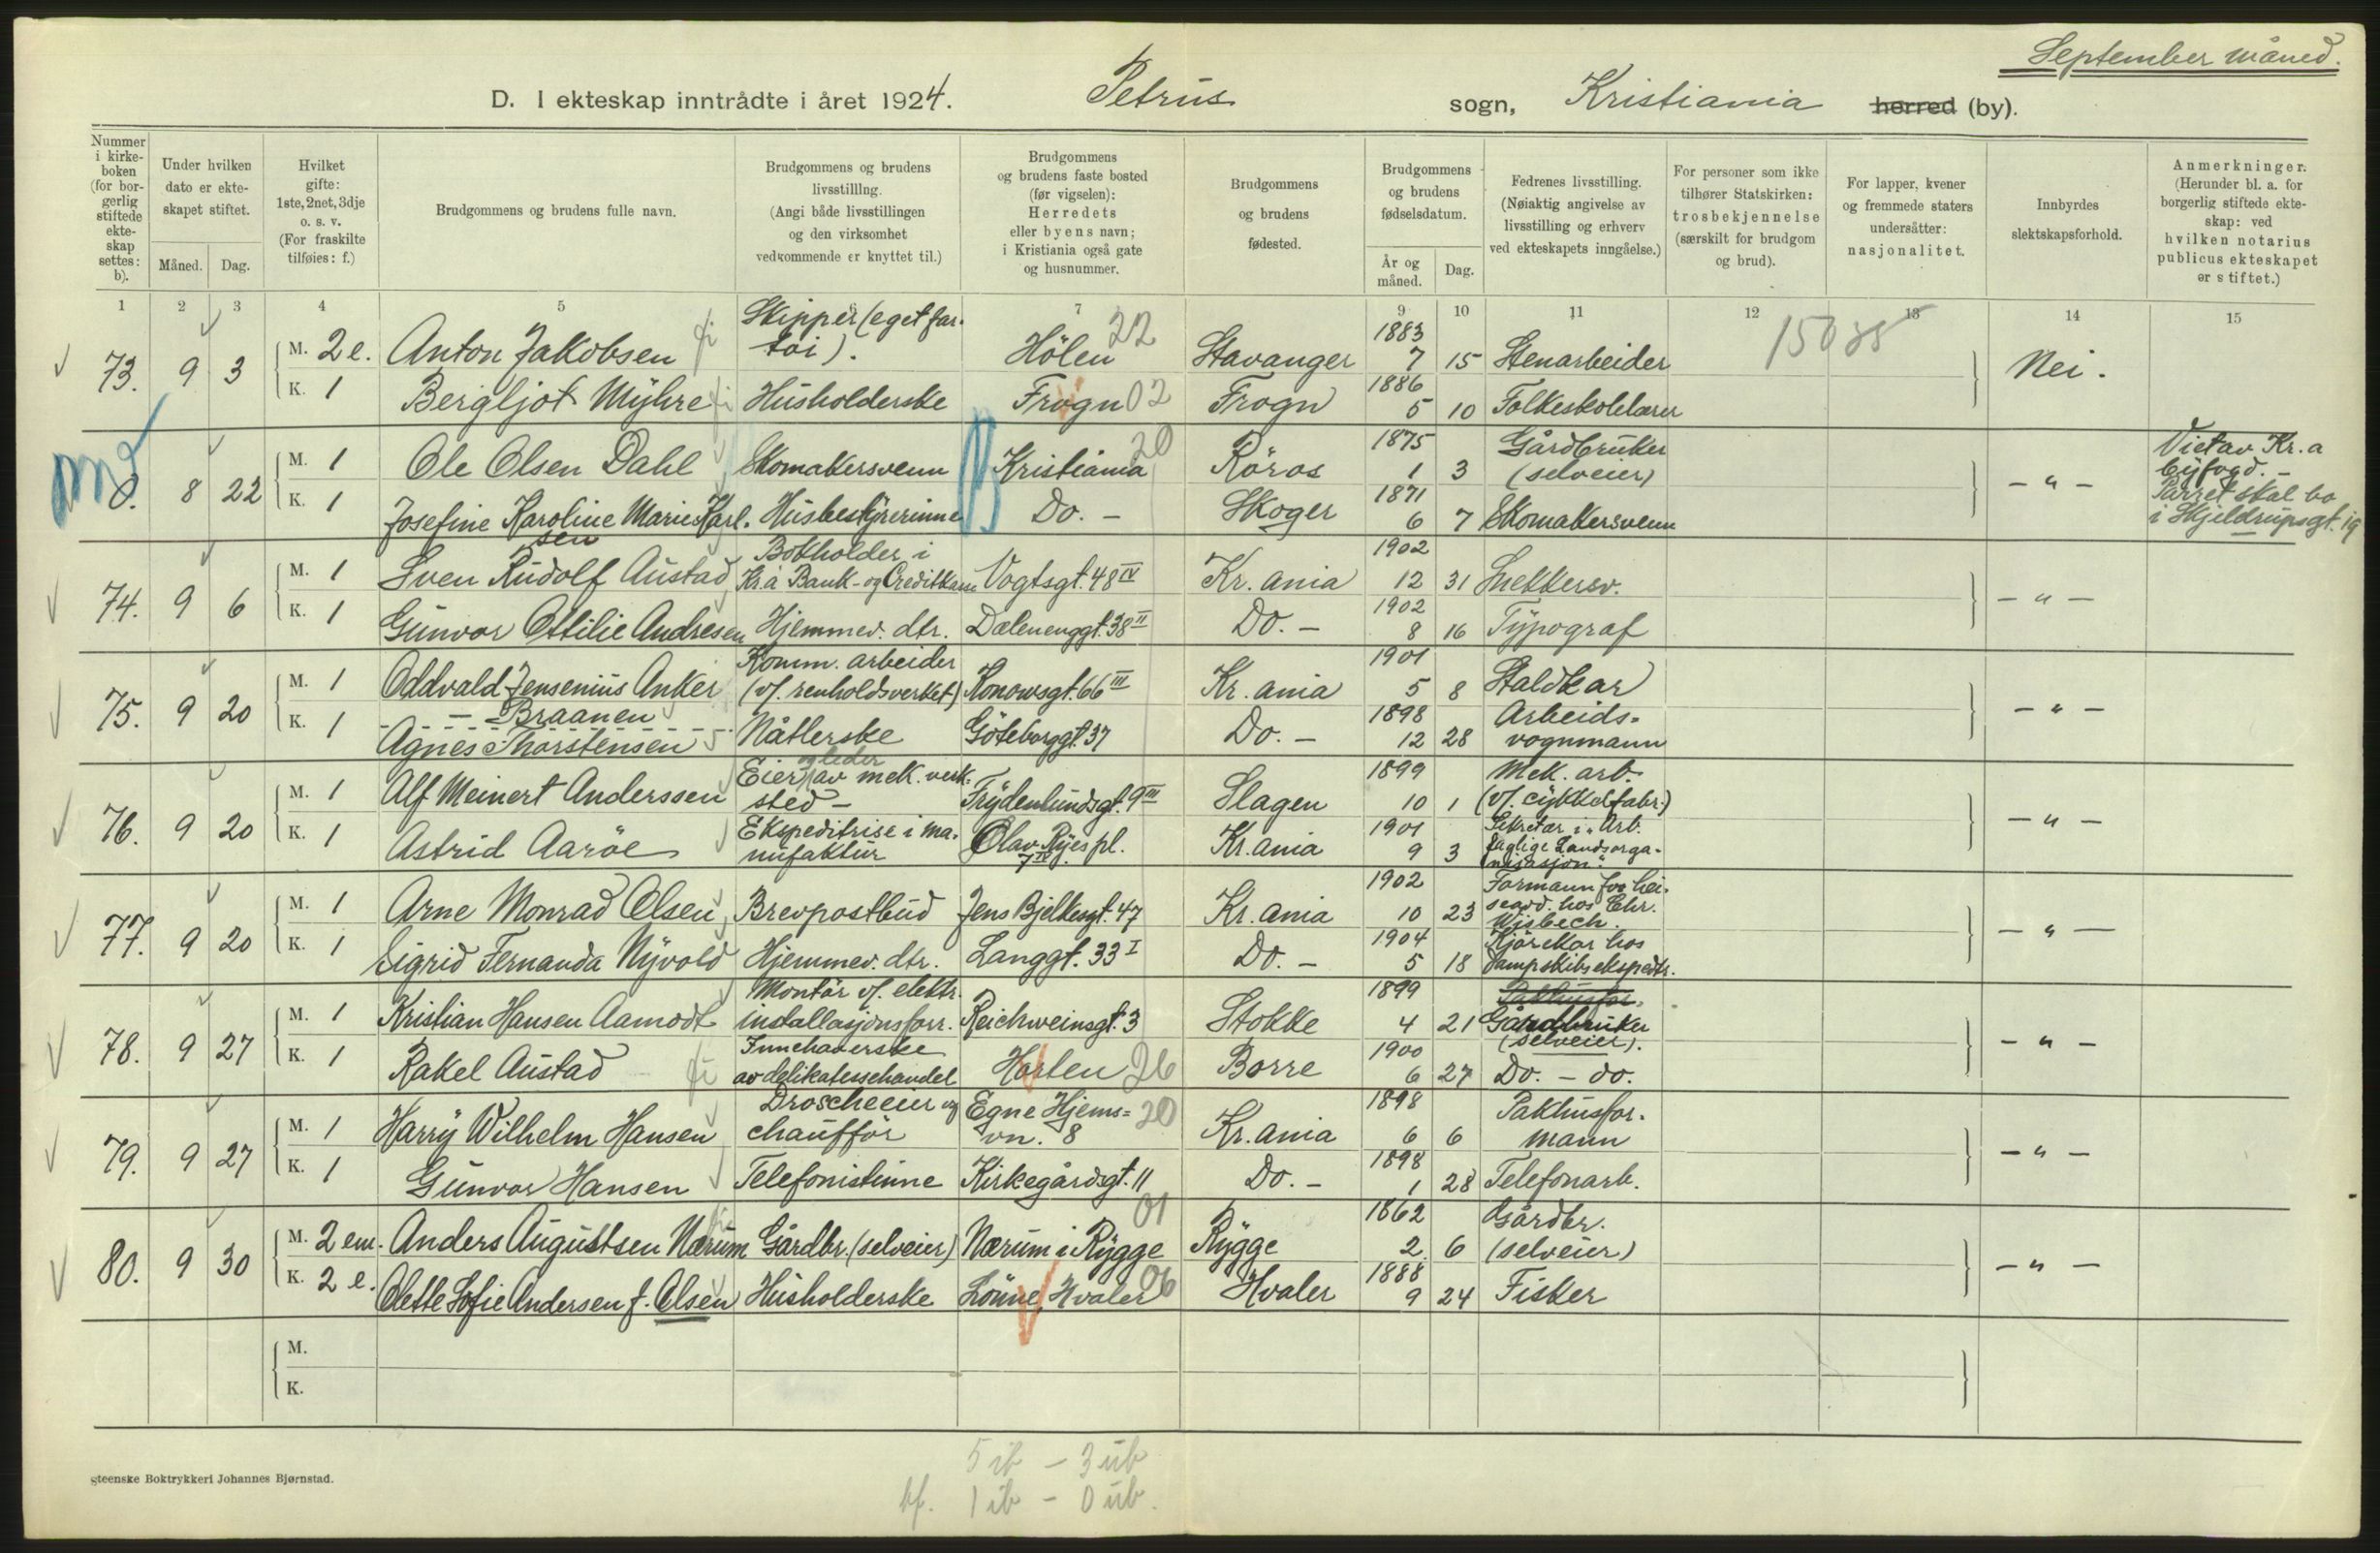 September måned.
D. I ekteskap inntrådte i året 1924. Petrus sogn, Kristiania herred (by).
Nummer i kirkeboken (for borgerlig stiftede ekteskap settes: b).
Under hvilken dato er ekteskapet stiftet.
Måned. Dag.
Hvilket gifte: 1ste, 2net, 3dje o. s. v. (For fraskilte tilføies: f.)
Brudgommens og brudens fulle navn.
Brudgommens og brudens livsstilling. (Angi både livsstillingen og den virksomhet vedkommende er knyttet til.)
Brudgommens og brudens faste bosted (før vigselen): Herredets eller byens navn; i Kristiania også gate og husnummer.
Brudgommens og brudens fødested.
Brudgommens og brudens fødselsdatum.
År og måned. Dag.
Fedrenes livsstilling. (Nøiaktig angivelse av livsstilling og erhverv ved ekteskapets inngåelse.)
For personer som ikke tilhører Statskirken: trosbekjennelse (særskilt for brudgom og brud).
For lapper, kvener og fremmede staters undersåtter: nasjonalitet.
Innbyrdes slektskapsforhold.
Anmerkninger. (Herunder bl. a. for borgerlig stiftede ekteskap: ved hvilken notarius publicus ekteskapet er stiftet.)
1 2 3 4 5 7 9 10 11 12 13 14 15
73. 9 3 M. 2 e. Anton Jakobsen Skipper (eget fartöi). Hölen 22 Stavanger 1883 7 15 Stenarbeider Nei.
K. 1 Bergljot Myhre Husholderske Frogn 02 Frogn 1886 5 10 Folkeskolelærer
8 22 M. 1 Ole Olsen Dahl Skomakersvenn Kristiania 20 Röros 1875 1 3 Gårdbruker (selveier) - " - Viet av Kr.a byfogd. -
K. 1 Josefine Karoline Marie Karlsen Husbestyrerinne Do. - Skoger 1871 6 7 Skomakersvenn Parret skal bo i Skjeldrupsgt. 19
74. 9 6 M. 1 Sven Rudolf Austad Bokholder i Kr.a Bank- og Creditkasse Vogtsgt. 48 IV Kr.ania 1902 12 31 Snekkersv. - " -
K. 1 Gunvor Ottilie Andresen Hjemmev. dtr. Dælenenggt. 38 II Do. - 1902 8 16 Typograf
75. 9 20 M. 1 Oddvald Jensenius Anker - Braanen Komm. arbeider (v/. renholdsverket) Konowsgt. 66 III Kr.ania 1901 5 8 Staldkar - " -
K. 1 Agnes Thorstensen Nåtlerske Göteborggt. 37 Do. - 1898 12 28 Arbeidsvognmann
76. 9 20 M. 1 Alf Meinert Anderssen Eier og leder av mek. verksted - Frydenlundsgt. 9 III Slagen 1899 10 1 Mek. arb. (v/. cykkelfabr.) - " -
K. 1 Astrid Aaröe Ekspeditrise i manufaktur Olav Ryes pl. 7 Kr.ania 1901 9 3 Sekretær i "Arb. faglige Landsorganisasjon".
77. 9 20 M. 1 Arne Monrad Olsen Brevpostbud Jens Bjelkesgt. 47 Kr.ania 1902 10 23 Formann hos Chr. Wisbech. - " -
K. 1 Sigrid Fernanda Nyvold Hjemmev. dtr. Langgt. 33 I Do. - 1904 5 18 Kjörekar hos dampskibsekspedtr.
78. 9 27 M. 1 Kristian Hansen Aamodt Montör v/. elektr. installasjonsforr. Reichweinsgt. 3 Stokke 1899 4 21 Pakhusfor. Gårdbruker (selveier). - " -
K. 1 Rakel Austad Innehaverske av delikatessehandel Horten 26 Borre 1900 6 27 Do. - do.
79. 9 27 M. 1 Harry Wilhelm Hansen Droscheeier og chaufför Egne Hjemsvn. 8 20 Kr.ania 1898 6 6 Pakhusformann - " -
K. 1 Gunvor Hansen Telefonistinne Kirkegårdsgt. 11 Do. - 1898 1 28 Telefonarb.
80. 9 30 M. 2 em. Anders Augustsen Nærum Gårdbr. (selveier) Nærum i Rygge 01 Rygge 1862 2 6 Gårdbr. (selveier) - " -
K. 2 e. Olette Sofie Andersen f. Olsen Husholderske Lönne, Hvaler 06 Hvaler 1888 9 24 Fisker
M.
K.
5 ib - 3 ub
bf. 1 ib - 0 ub.
steenske Boktrykkeri Johannes Bjørnstad.